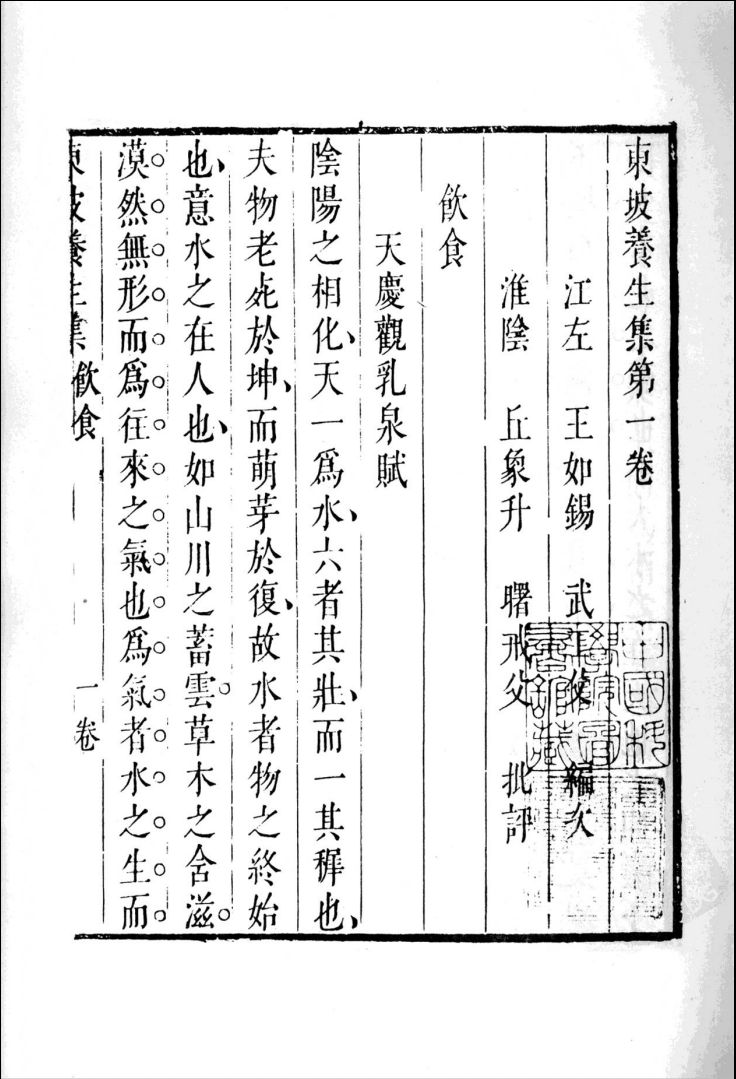 東坡養生集第一卷
江左 王如錫 武 編次
淮陰 丘象升 曙戒父 批評
飲食
天慶觀乳泉賦
陰陽之相化、天一爲水、六者其壯、而一其穉也、
夫物老死於坤、而萌芽於復、故水者物之終始
也、意水之在人也、如山川之蓄雲。草木之含滋。
漠。然。無。形。而。爲。往。來。之。氣。也。爲。氣。者。水。之。生。而。
東坡養生集 飲食 一卷
中國科
學院圖
書館藏